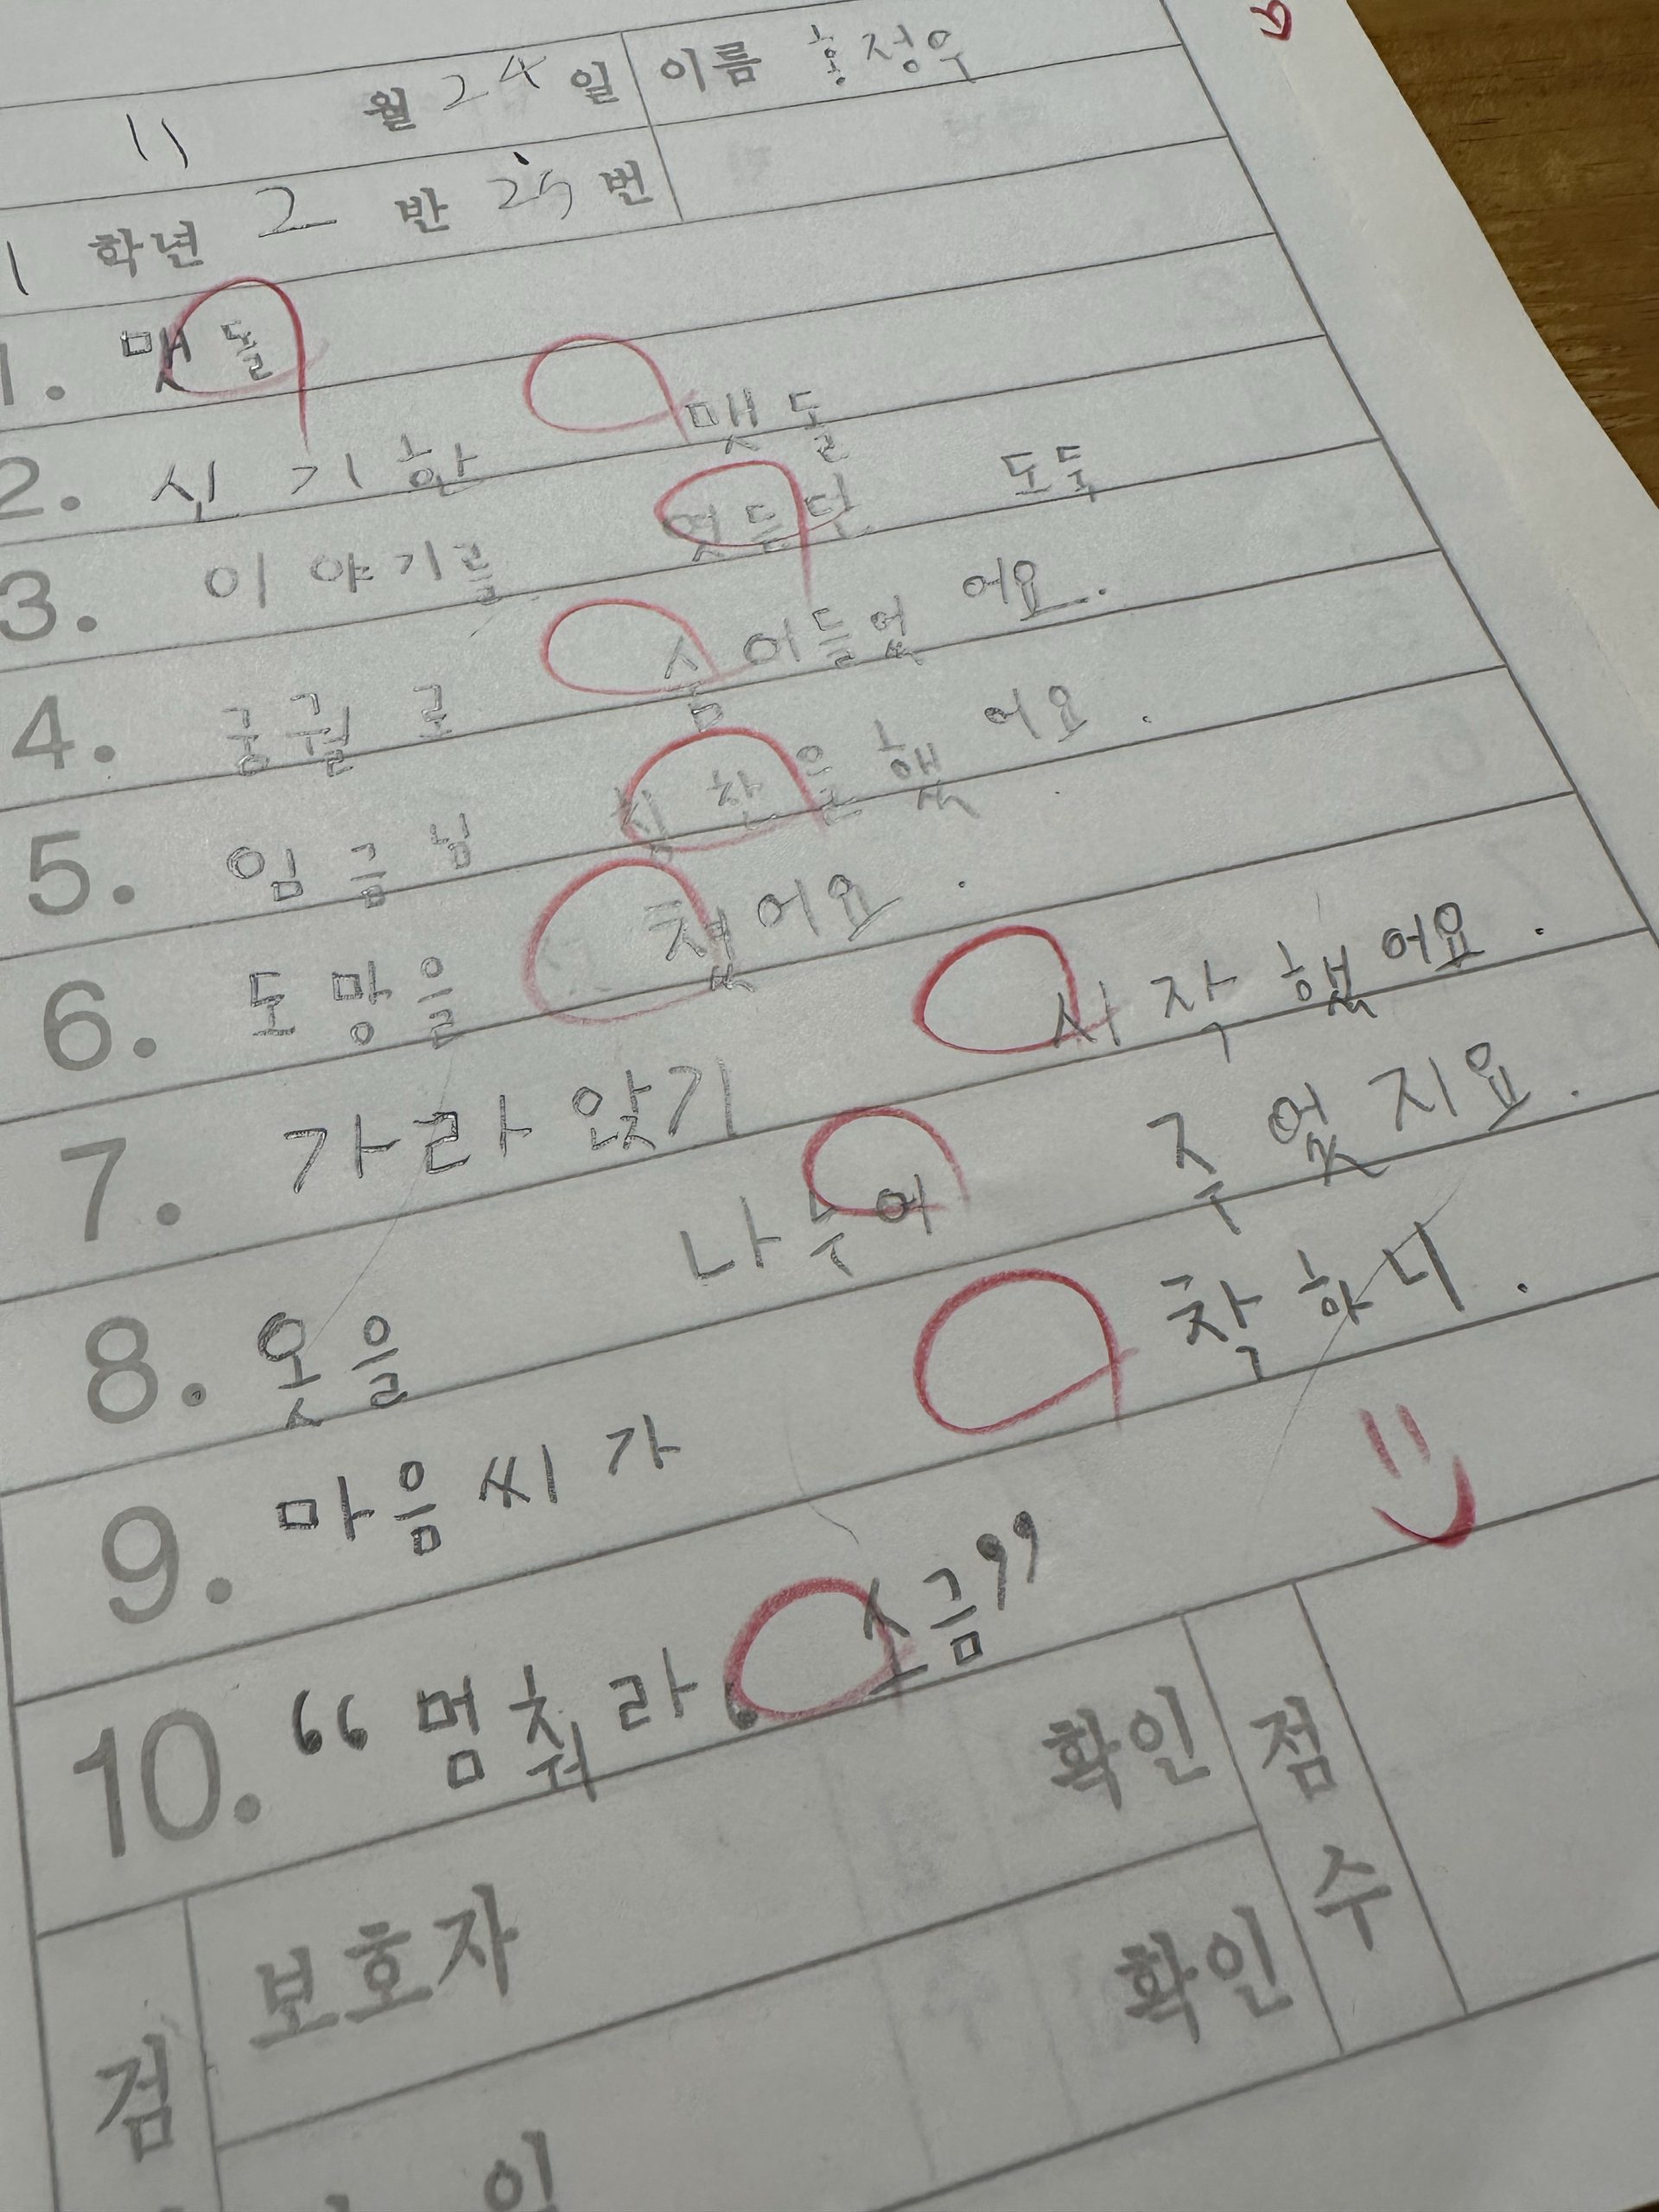 11 월 24 일 이름 홍정우
1 학년 2 반 25 번
1. 맷돌
2. 신기한 맷돌
3. 이야기를 엿듣던 도둑
4. 궁궐로 숨어들었어요.
5. 임금님 칭찬을 했어요.
6. 도망을 쳤어요.
7. 가라앉기 시작했어요.
8. 옷을 나누어 주엇지요.
9. 마음씨가 착하니.
10. “멈춰라, 소금”
검 보호자 확인 점수
인 확인